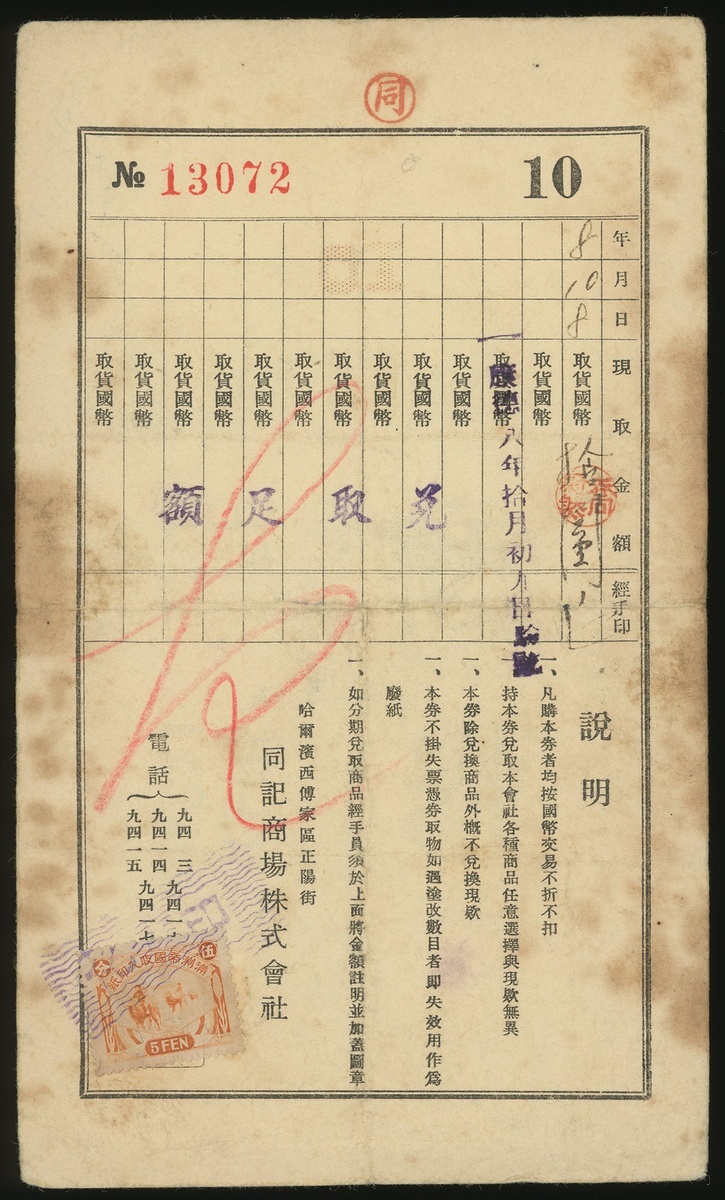 同
№ 13072
10
年 月 日 現取金額 經手印
8 10 8
取貨國幣
取貨國幣
取貨國幣
取貨國幣
取貨國幣
取貨國幣
取貨國幣
取貨國幣
取貨國幣
取貨國幣
取貨國幣
取貨國幣
取貨國幣
康德八年拾月初八日
兌取足額
說明
一、凡購本券者均按國幣交易不折不扣
一、持本券兌取本會社各種商品任意選擇與現欵無異
一、本券除兌換商品外概不兌換現欵
一、本券不掛失票憑券取物如遇塗改數目者即失效用作為
廢紙
一、如分期兌取商品經手員須於上面將金額註明並加蓋圖章
哈爾濱西傅家區正陽街
同記商場株式會社
電話
九四一四
九四一五
九四一七
伍
5 FEN